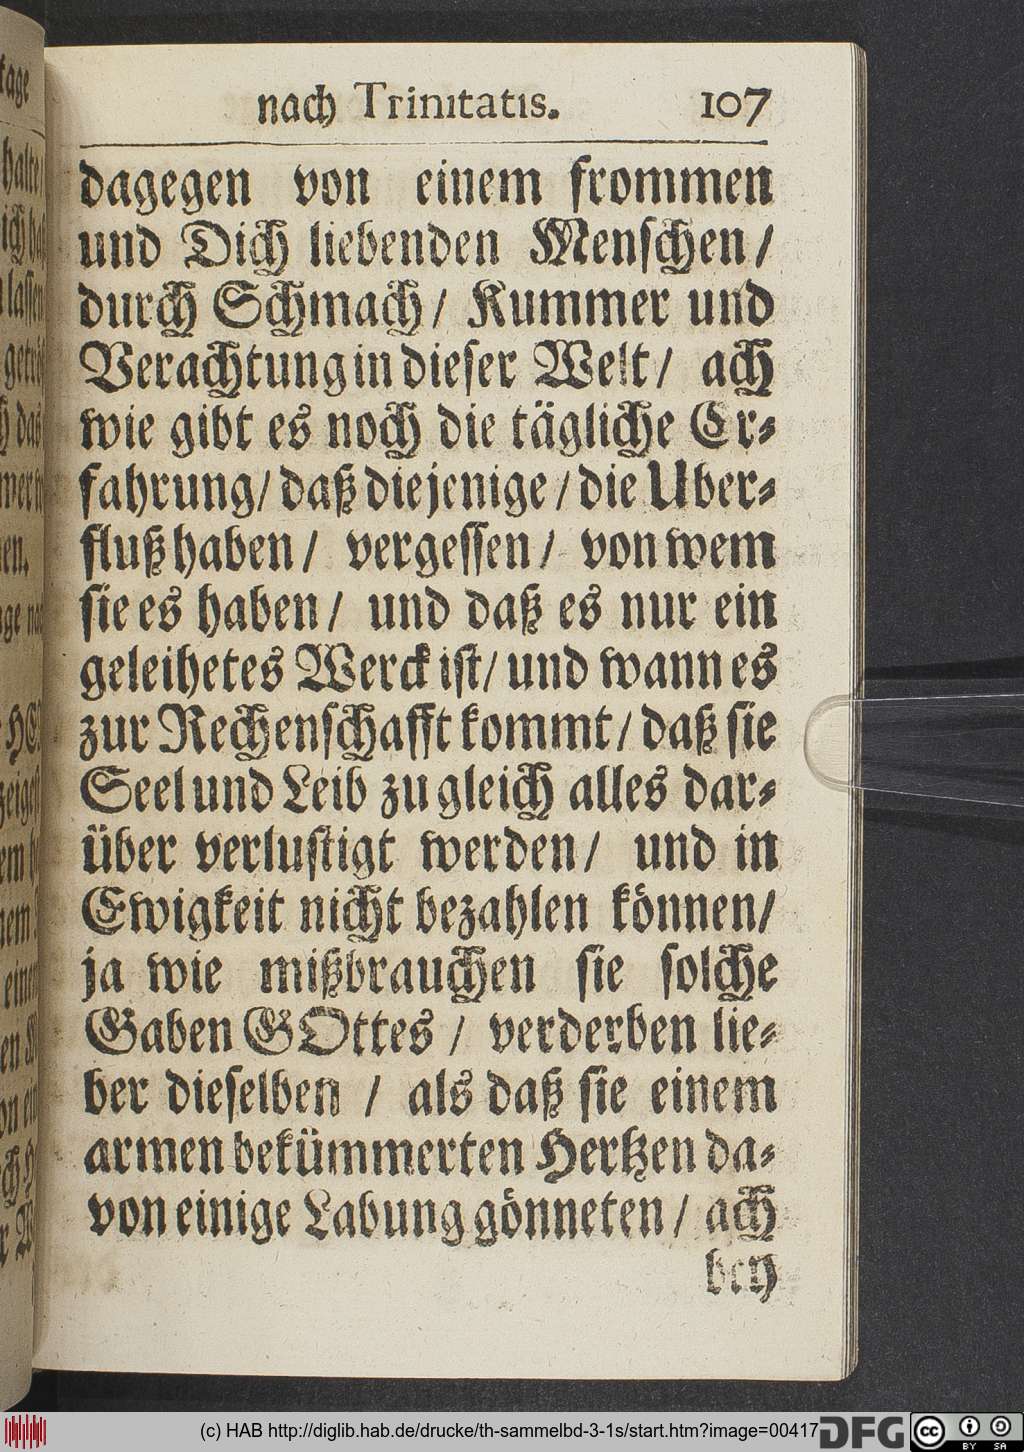 nach Trinitatis. 107
dagegen von einem frommen
und Dich liebenden Menschen/
durch Schmach/ Kummer und
Verachtung in dieser Welt/ ach
wie gibt es noch die tägliche Er-
fahrung/ daß diejenige/ die Uber-
fluß haben/ vergessen/ von wem
sie es haben/ und daß es nur ein
geleihetes Werck ist/ und wann es
zur Rechenschafft kommt/ daß sie
Seel und Leib zu gleich alles dar-
über verlustigt werden/ und in
Ewigkeit nicht bezahlen können/
ja wie mißbrauchen sie solche
Gaben GOttes/ verderben lie-
ber dieselben/ als daß sie einem
armen bekümmerten Hertzen da-
von einige Labung gönneten/ ach
bey
(c) HAB http://diglib.hab.de/drucke/th-sammelbd-3-1s/start.htm?image=00417
DFG
cc
BY SA